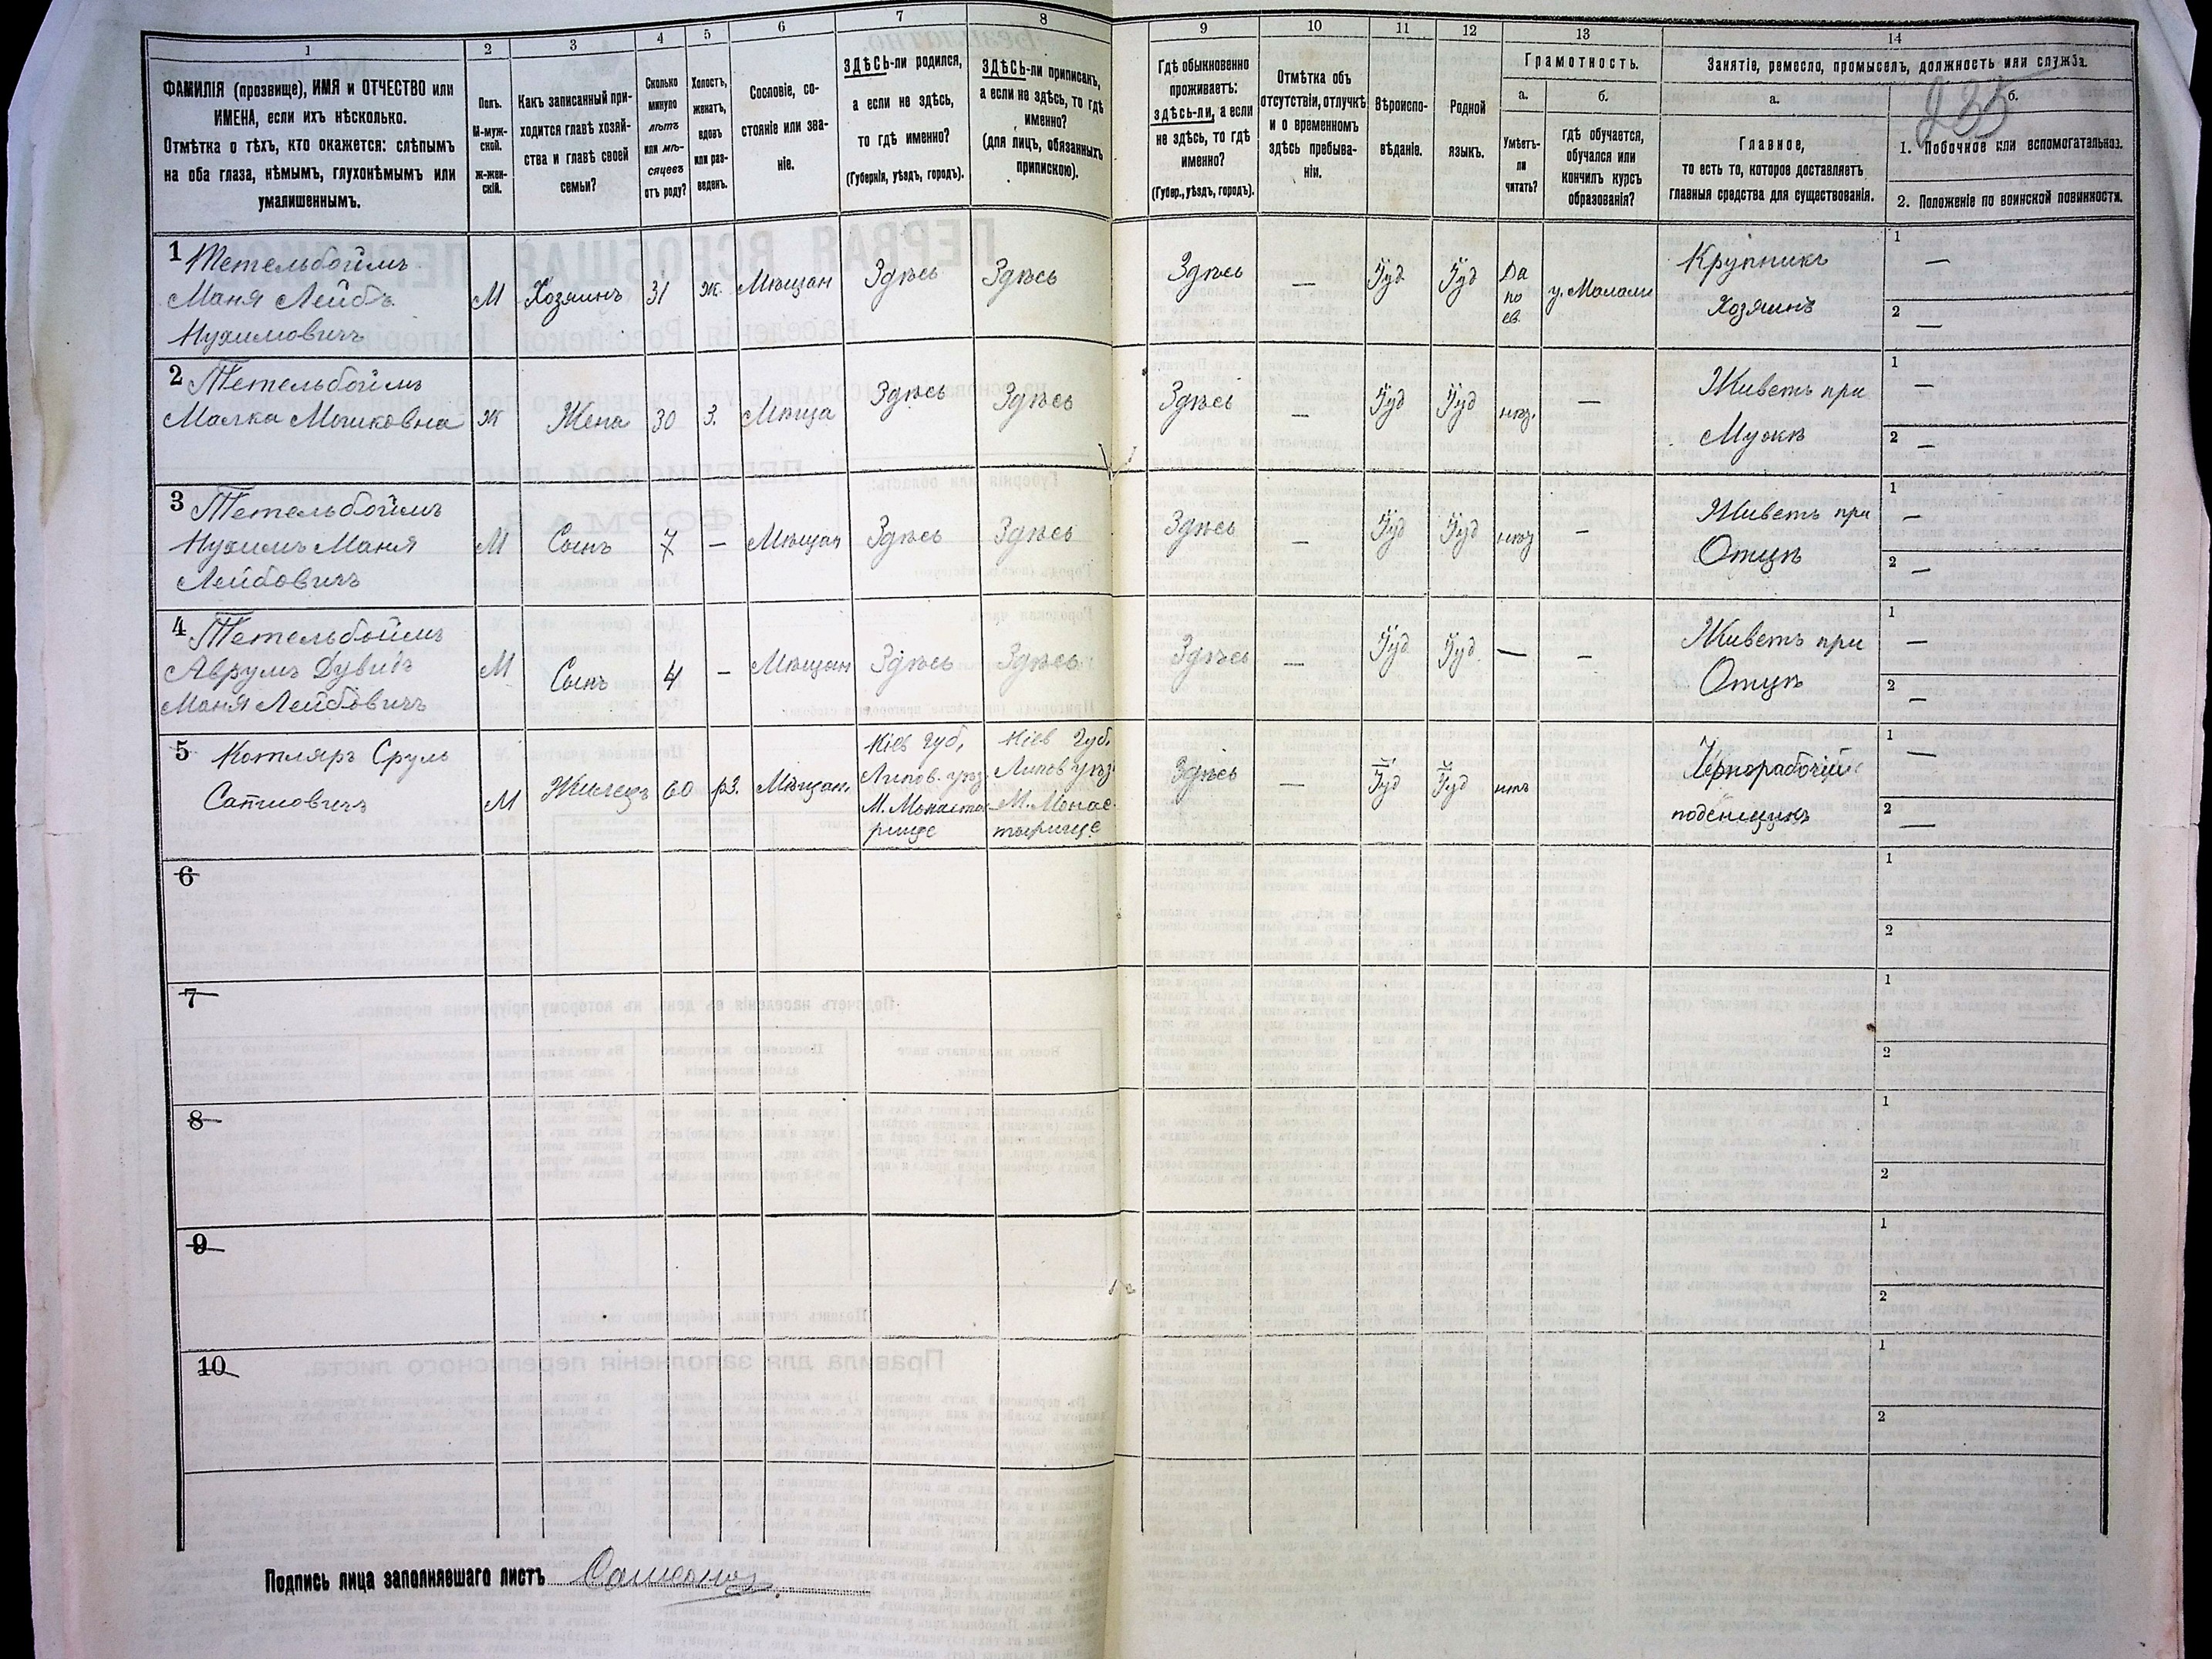 1 2 3 4 5 6 7 8 9 10 11 12 13 14
ФАМИЛІЯ (прозвище), ИМЯ и ОТЧЕСТВО или
ИМЕНА, если ихъ нѣсколько.
Отмѣтка о тѣхъ, кто окажется: слѣпымъ
на оба глаза, нѣмымъ, глухонѣмымъ или
умалишеннымъ.
Полъ.
М-муж-
ской.
ж-жен-
скій.
Какъ записанный при-
ходится главѣ хозяй-
ства и главѣ своей
семьи?
Сколько
минуло
лѣтъ
или мѣ-
сяцевъ
отъ роду?
Холостъ,
женатъ,
вдовъ
или раз-
веденъ.
Сословіе, со-
стояніе или зва-
ніе.
ЗДѢСЬ-ли родился,
а если не здѣсь,
то гдѣ именно?
(Губернія, уѣздъ, городъ).
ЗДѢСЬ-ли приписанъ,
а если не здѣсь, то гдѣ
именно?
(для лицъ, обязанныхъ
припискою).
Гдѣ обыкновенно
проживаетъ:
здѣсь-ли, а если
не здѣсь, то гдѣ
именно?
(Губер., уѣздъ, городъ).
Отмѣтка объ
отсутствіи, отлучкѣ
и о временномъ
здѣсь пребыва-
ніи.
Вѣроиспо-
вѣданіе.
Родной
языкъ.
Грамотность.
а.
Умѣетъ-
ли
читать?
б.
гдѣ обучается,
обучался или
кончилъ курсъ
образованія?
Занятіе, ремесло, промыселъ, должность или служба.
а.
Главное,
то есть то, которое доставляетъ
главныя средства для существованія.
б.
235
1. Побочное или вспомогательное.
2. Положеніе по воинской повинности.
1 Тетельбоймъ
Маня Лейбъ
Нухимовичъ
М
Хозяинъ
31
ж.
Мѣщан
Здѣсь
Здѣсь
Здѣсь
—
Іуд
Іуд
Да
по
ев.
у. Малам
Крупникъ
Хозяинъ
1 —
2 —
2 Тетельбоймъ
Малка Мошковна
Ж
Жена
30
З.
Мѣща
Здѣсь
Здѣсь
Здѣсь
—
Іуд
Іуд
—
Живетъ при
Мужѣ
1 —
2 —
3 Тетельбоймъ
Нухимъ Маня
Лейбовичъ
М
Сынъ
7
—
Мѣщан
Здѣсь
Здѣсь
Здѣсь
—
Іуд
Іуд
—
Живетъ при
Отцѣ
1 —
2 —
4 Тетельбоймъ
Аврумъ Дувидъ
Маня Лейбовичъ
М
Сынъ
4
—
Мѣщан
Здѣсь
Здѣсь
Здѣсь
—
Іуд
Іуд
—
—
Живетъ при
Отцѣ
1 —
2 —
5 Котляръ Сруль
М
Жилецъ
60
Мѣщан.
Кіев губ.
Липов. уѣз
М. Монасты
рище
Кіев Губ.
Липов уѣз
М. Монас
тырище
Здѣсь
—
Іуд
Іуд
нѣтъ
Чернорабочій
поденщикъ
1 —
2 —
6
1
2
7
1
2
8
1
2
9
1
2
10
1
2
Подпись лица заполнявшаго листъ